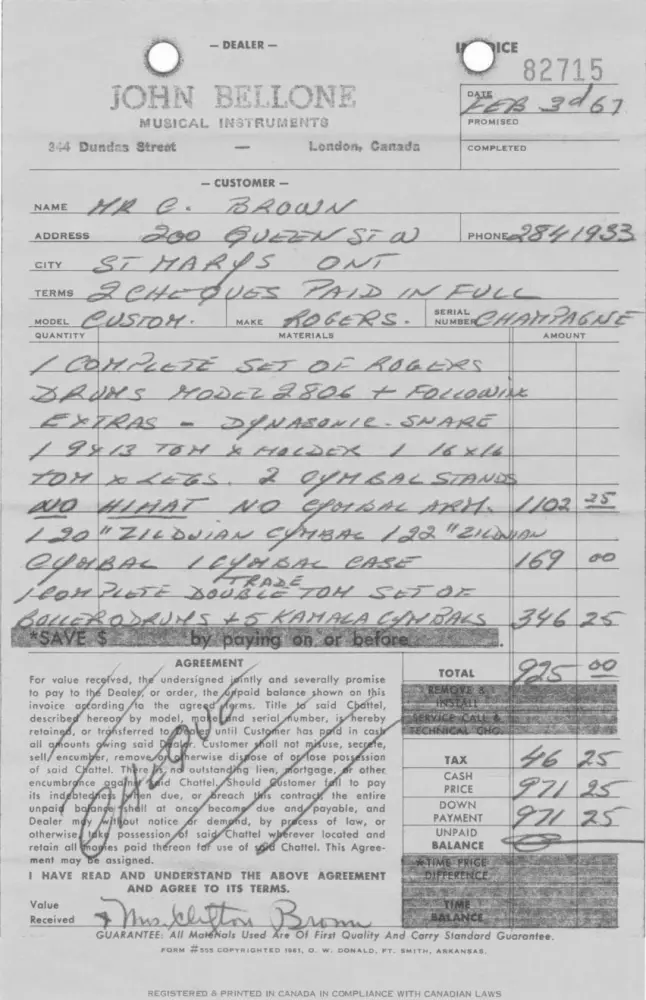 — DEALER —
INVOICE
82715
JOHN BELLONE
MUSICAL INSTRUMENTS
344 Dundas Street — London, Canada
DATE FEB 3d 67
PROMISED
COMPLETED
— CUSTOMER —
NAME MR C. BROWN
ADDRESS 200 QUEEN ST W PHONE 2841933
CITY ST MARYS ONT
TERMS 2 CHEQUES PAID IN FULL
MODEL CUSTOM. MAKE ROGERS. SERIAL NUMBER CHAMPAGNE
QUANTITY MATERIALS AMOUNT
1 COMPLETE SET OF ROGERS
DRUMS MODEL 2806 + FOLLOWING
EXTRAS - DYNASONIC - SNARE
1 9X13 TOM & HOLDER 1 16X16
TOM & LEGS. 2 CYMBAL STANDS
NO HIHAT NO CYMBAL ARM. 1102 25
1 20" ZILDJIAN CYMBAL 1 22" ZILDJIAN
CYMBAL 1 CYMBAL CASE 169 00
TRADE
1 COMPLETE DOUBLE TOM SET OF
DRUMS +5 KAMALA CYMBALS 346 25
*SAVE $ by paying on or before .
AGREEMENT
For value received, the undersigned jointly and severally promise
to pay to the Dealer, or order, the unpaid balance shown on this
invoice according to the agreed terms. Title to said Chattel,
described hereon by model, make and serial number, is hereby
retained, or transferred to until Customer has paid in cash
all amounts owing said Dealer. Customer shall not misuse, secrete,
sell, encumber, remove, or otherwise dispose of or lose possession
of said Chattel. There is no outstanding lien, mortgage, or other
encumbrance against said Chattel. Should Customer fail to pay
its indebtedness when due, or breach this contract, the entire
unpaid balance shall at once become due and payable, and
Dealer may without notice or demand, by process of law, or
otherwise, take possession of said Chattel wherever located and
retain all monies paid thereon for use of said Chattel. This Agree-
ment may be assigned.
CHEQUE
I HAVE READ AND UNDERSTAND THE ABOVE AGREEMENT
AND AGREE TO ITS TERMS.
Value
Received Mrs. Clifton Brown
TOTAL 925 00
REMOVE &
INSTALL
SERVICE CALL &
TECHNICAL CHG.
TAX 46 25
CASH
PRICE 971 25
DOWN
PAYMENT 971 25
UNPAID
BALANCE
*TIME PRICE
DIFFERENCE
TIME
BALANCE
GUARANTEE: All Materials Used Are Of First Quality And Carry Standard Guarantee.
FORM #555 COPYRIGHTED 1961, O. W. DONALD, FT. SMITH, ARKANSAS.
REGISTERED & PRINTED IN CANADA IN COMPLIANCE WITH CANADIAN LAWS